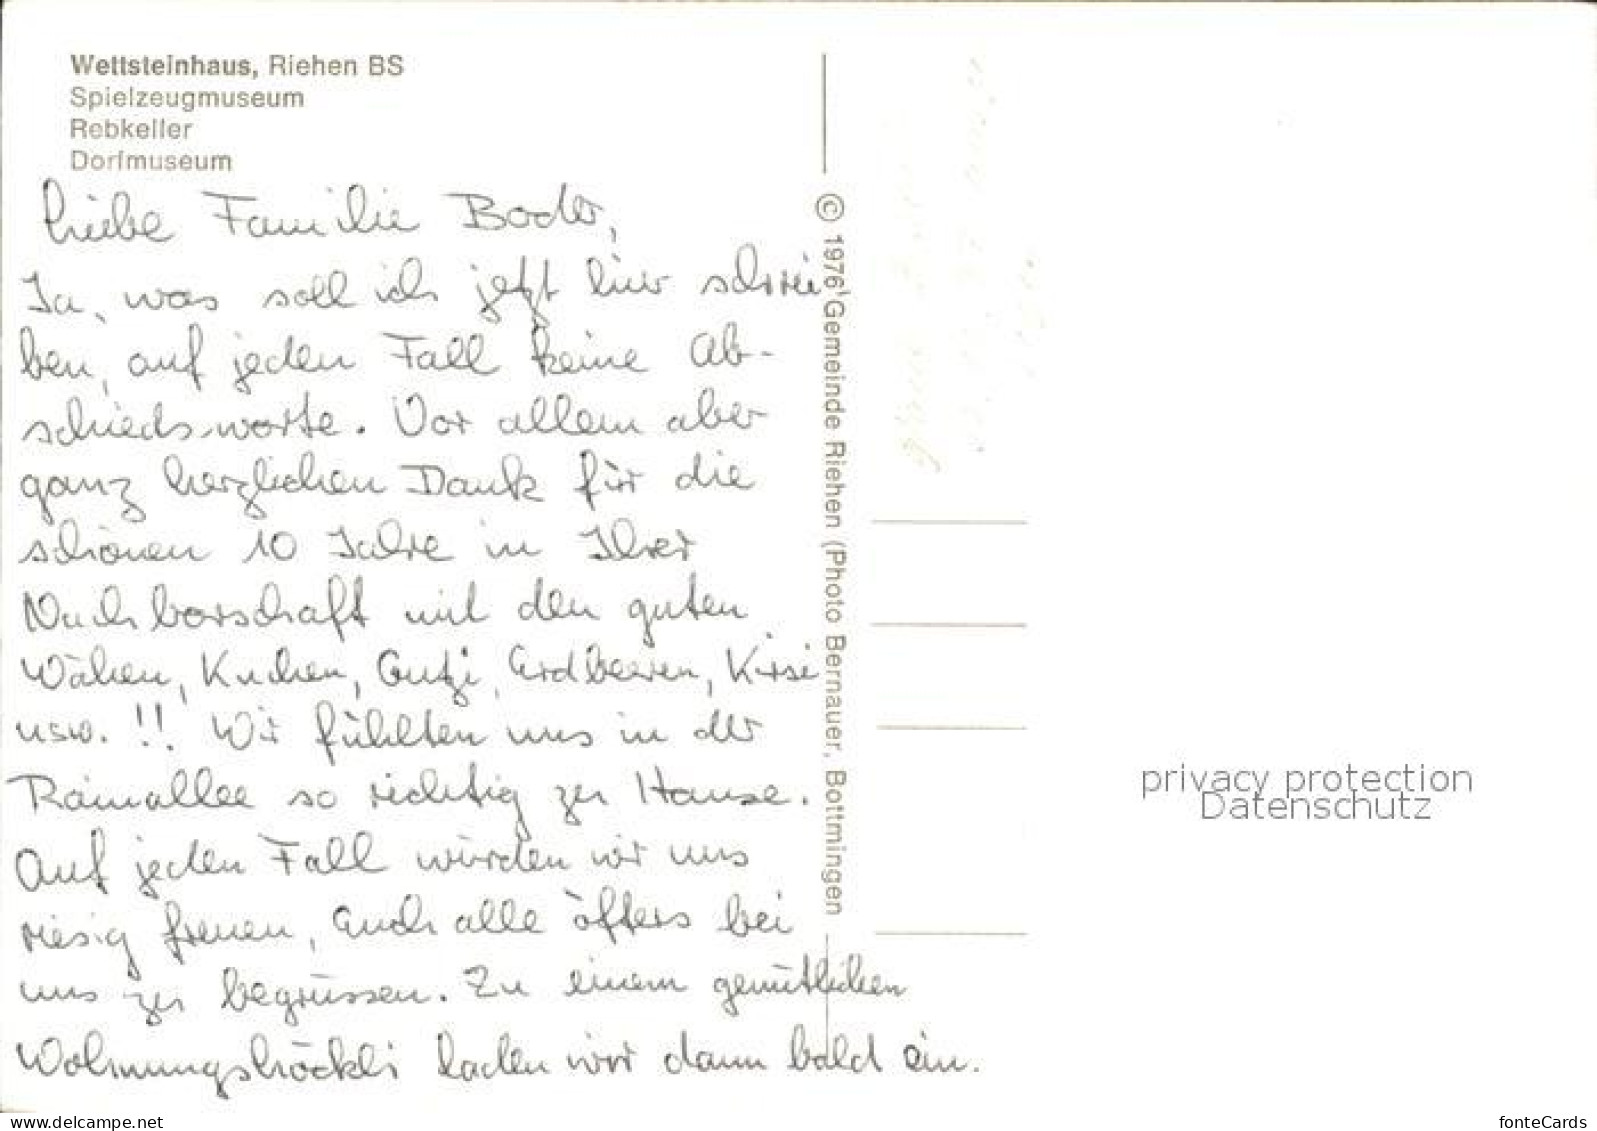 Wettsteinhaus, Riehen BS
Spielzeugmuseum
Rebkeller
Dorfmuseum
Liebe Familie Boder,
Ja, was soll ich jetzt hier schrei-
ben, auf jeden Fall keine Ab-
schiedsworte. Vor allem aber
ganz herzlichen Dank für die
schönen 10 Jahre in Ihrer
Nachbarschaft mit den guten
Wähen, Kuchen, Gutzi, Erdbeeren, Kirsi
usw. !! Wir fühlten uns in der
Rainallee so richtig zu Hause.
Auf jeden Fall würden wir uns
riesig freuen, Euch alle öfters bei
uns zu begrüssen. Zu einem gemütlichen
Wohnungshöckli laden wir dann bald ein.
© 1976 Gemeinde Riehen (Photo Bernauer, Bottmingen
privacy protection
Datenschutz
www.delcampe.net
fonteCards